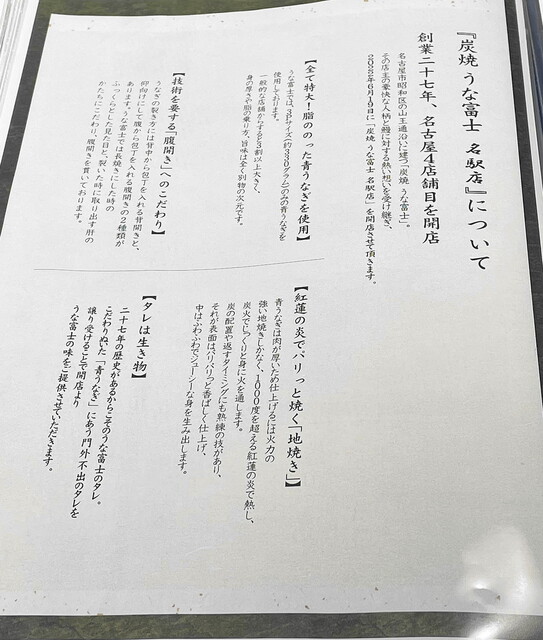 『炭焼 うな富士 名駅店』について
創業二十七年、名古屋４店舗目を開店
名古屋市昭和区の山王通沿いに建つ「炭焼 うな富士」。
その店主の豪快な人柄と鰻に対する熱い想いを受け継ぎ、
2022年6月19日に「炭焼 うな富士 名駅店」を開店させて頂きます。
【全て特大！脂ののった青うなぎを使用】
うな富士では、3Pサイズ（約330グラム）のみの青うなぎを
使用しております。
一般的な店舗からすると3割以上大きく、
身の厚さや脂の乗り方、旨味は全く別物の次元です。
【技術を要する「腹開き」へのこだわり】
うなぎの裂き方には背中から包丁を入れる背開きと、
仰向けにして腹から包丁を入れる腹開きの2種類が
あります。うな富士では長焼きにした時の
ふっくらとした見た目と、裂いた時に取り出す肝の
かたちにこだわり、腹開きを貫いております。
【紅蓮の炎でパリっと焼く「地焼き」】
青うなぎは肉が厚いため仕上げるには火力の
強い地焼きしかなく、1000度を超える紅蓮の炎で熱し、
炭火でじっくりと身に火を通します。
炭の配置や返すタイミングにも熟練の技があり、
それが表面はパリパリっと香ばしく仕上げ、
中はふわふわでジューシーな身を生み出します。
【タレは生き物】
二十七年の歴史があるからこそのうな富士のタレ。
こだわりぬいた「青うなぎ」にあう門外不出のタレを
譲り受けることで開店より
うな富士の味をご提供させていただきます。